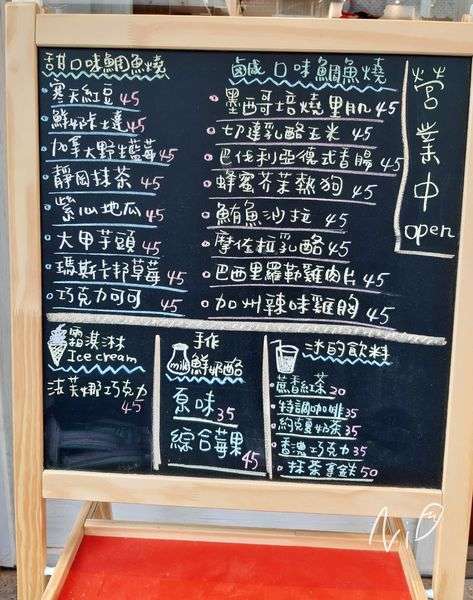 甜口味鯛魚燒
寒天紅豆 45
鮮奶卡士達 45
加拿大野生藍莓 45
靜岡抹茶 45
紫心地瓜 45
大甲芋頭 45
瑪斯卡邦草莓 45
巧克力可可 45
鹹口味鯛魚燒
墨西哥培燒里肌 45
切達乳酪玉米 45
巴伐利亞德式香腸 45
蜂蜜芥茉熱狗 45
鮪魚沙拉 45
摩佐拉乳酪 45
巴西里羅勒雞肉片 45
加州辣味雞胸 45
營業中
open
霜淇淋
Ice cream
法芙娜巧克力
45
手作
milk 鮮奶酪
原味 35
綜合莓果
45
冰的飲料
蔗香紅茶 20
特調咖啡 35
約克夏奶茶 35
香濃巧克力 35
抹茶拿鐵 50